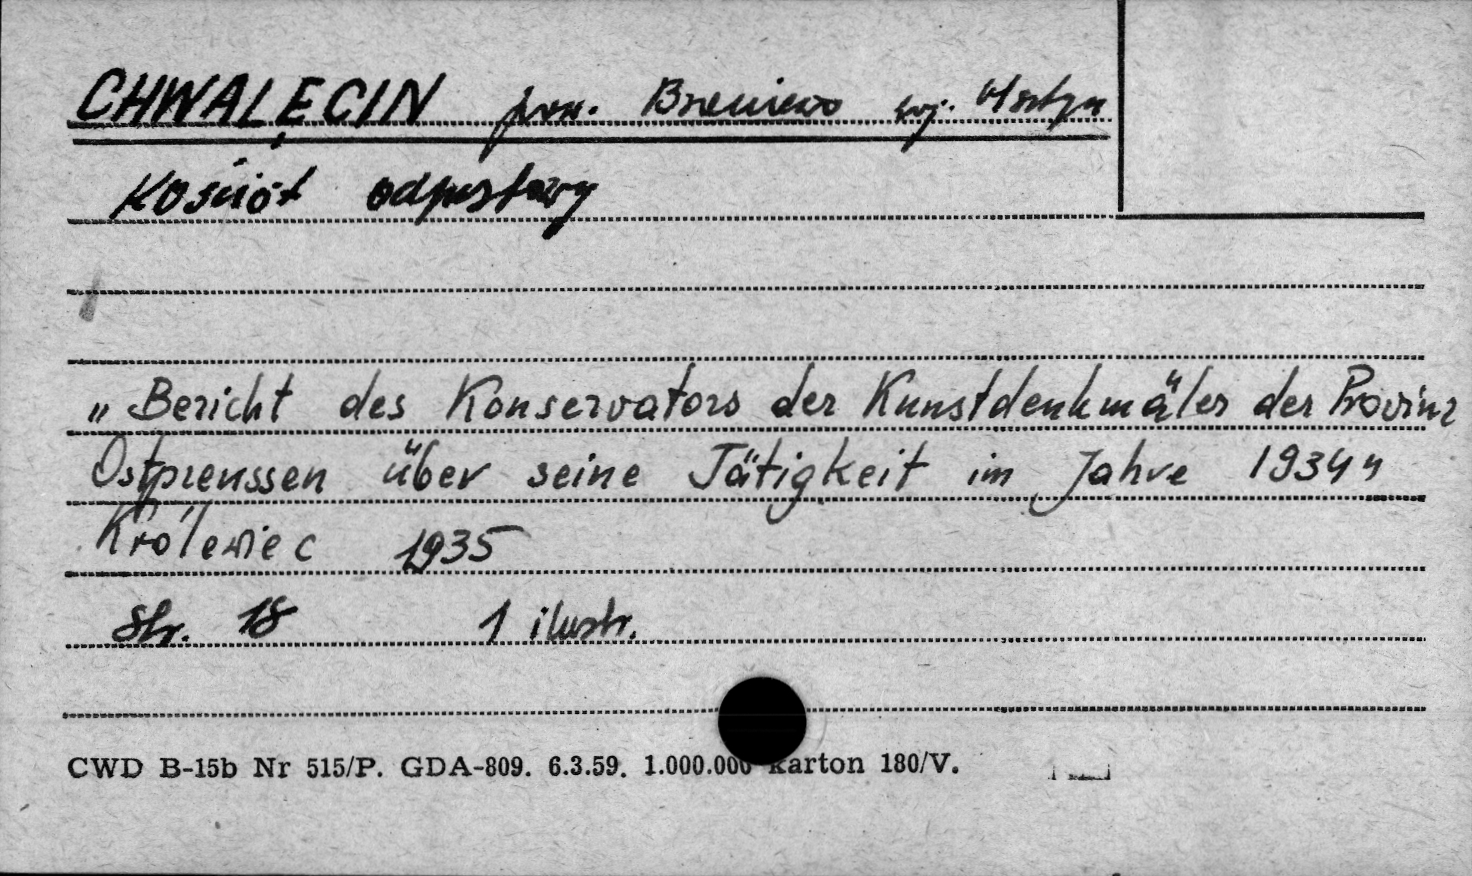 CHWALĘCIN pow. Braniewo woj. Olsztyn
Kościół odpustowy
„Bericht des Konservators der Kunstdenkmäler der Provinz
Ostpreussen über seine Tätigkeit im Jahre 1934"
Królewiec 1935
Str. 18 1 ilustr.
CWD B-15b Nr 515/P. GDA-809. 6.3.59. 1.000.000 karton 180/V.